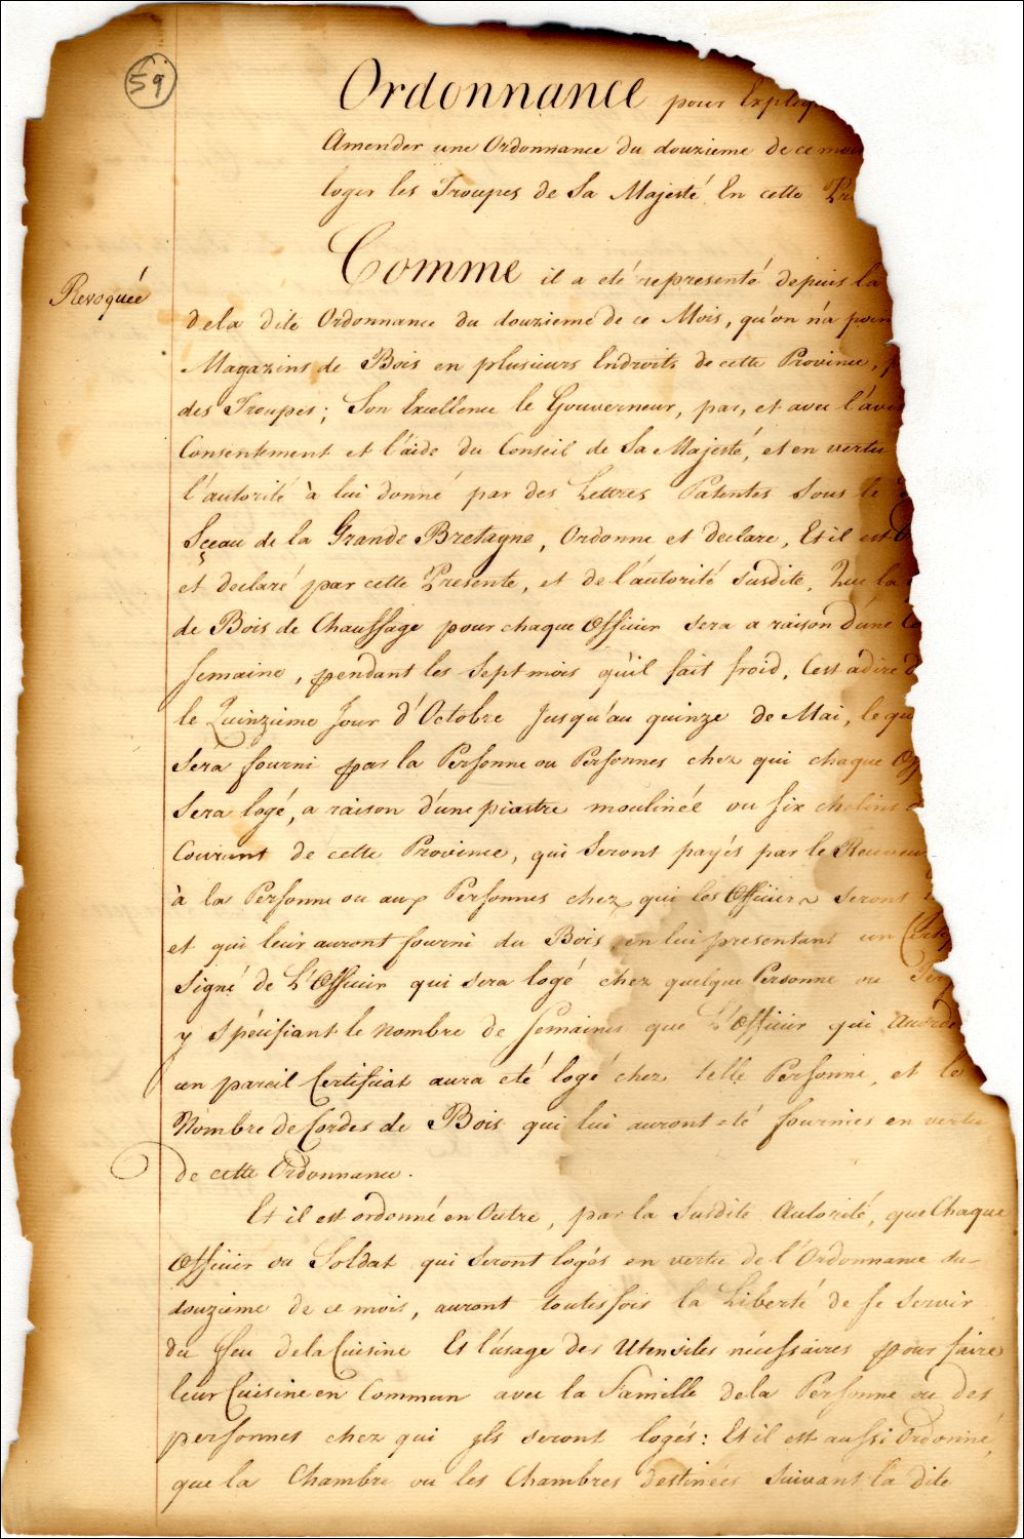 59
Ordonnance pour Expliq
Amender une Ordonnance du douzieme de ce mois
loger les Troupes de Sa Majesté En cette
Comme il a eté representé depuis la
Revoquée
dela dite Ordonnance du douzieme de ce Mois, qu'on n'a poin
Magazins de Bois en plusieurs Endroits de cette Province,
des Troupes; Son Excellence le Gouverneur, par, et avec l'avis
Consentement et l'aide du Conseil de Sa Majesté, et en vertu
l'autorité à lui donné par des Lettres Patentes Sous le
Sçeau de la Grande Bretagne, Ordonne et declare, Et il est
et declaré par cette Presente, et de l'autorité susdite, Que la
de Bois de Chauffage pour chaque Officier sera a raison d'une
semaine, pendant les Sept mois qu'il fait froid, Cest adire
le Quinzieme Jour d'Octobre Jusqu'au quinze de Mai, le
Sera fourni par la Personne ou Personnes chez qui chaque
Sera logé, a raison d'une piastre moulinée ou six chelins
Courant de cette Province, qui Seront payés par le Receveur
à la Personne ou aux Personnes chez qui les Officiers seront
et qui leur auront fourni du Bois en lui presentant un
Signé de L'Officier qui sera logé chez quelque Personne ou
y Spécifiant le Nombre de Semaines que L'Officier qui
un pareil Certificat aura eté logé chez telle Personne, et le
Nombre de Cordes de Bois qui lui auront eté fournies en vertu
de cette Ordonnance.
Et il est ordonné en Outre, par la Susdite Autorité, que Chaque
Officier ou Soldat qui seront logés en vertu de l'Ordonnance du
douzieme de ce mois, auront toutesfois la Liberté de se servir
du feu dela Cuisine Et l'usage des Utensiles nécessaires pour faire
leur Cuisine en Commun avec la Famille dela Personne ou des
personnes chez qui ils seront logés: Et il est aussi Ordonné,
que la Chambre ou les Chambres destinées Suivant la dite